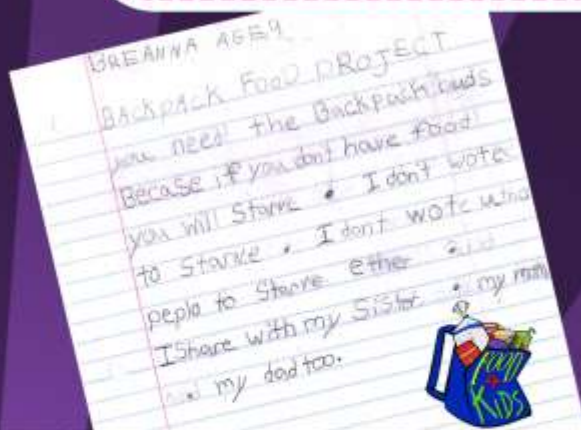 BREANNA AGE9
BACKPACK FOOD PROJECT
you need the Backpack buds
Becase if you dont have food
you will Starve . I don't wote
to Starve . I dont wote
peplo to Starve ether
I Share with my Sister . my
my dad too.
FOOD
4
KIDS